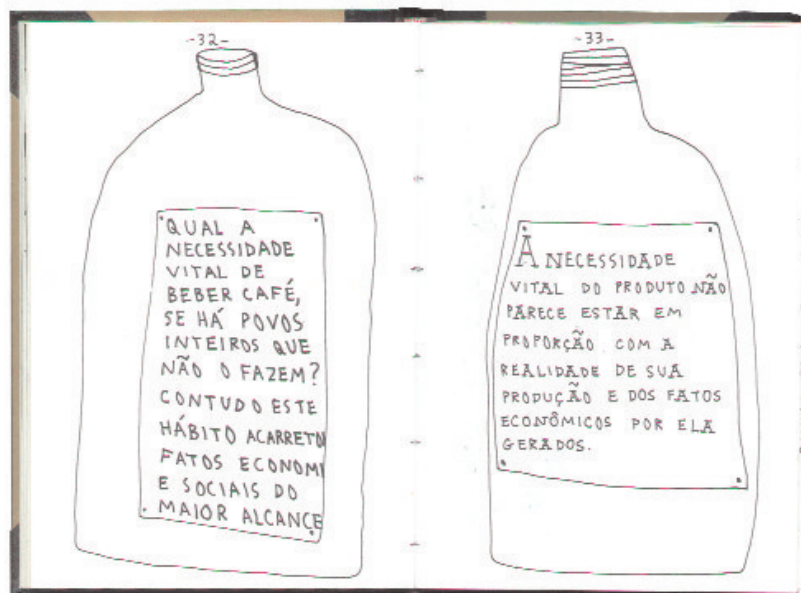 -32-
QUAL A
NECESSIDADE
VITAL DE
BEBER CAFÉ,
SE HÁ POVOS
INTEIROS QUE
NÃO O FAZEM?
CONTUDO ESTE
HÁBITO ACARRETOU
FATOS ECONOMI
E SOCIAIS DO
MAIOR ALCANCE
-33-
A NECESSIDADE
VITAL DO PRODUTO NÃO
PARECE ESTAR EM
PROPORÇÃO COM A
REALIDADE DE SUA
PRODUÇÃO E DOS FATOS
ECONÔMICOS POR ELA
GERADOS.